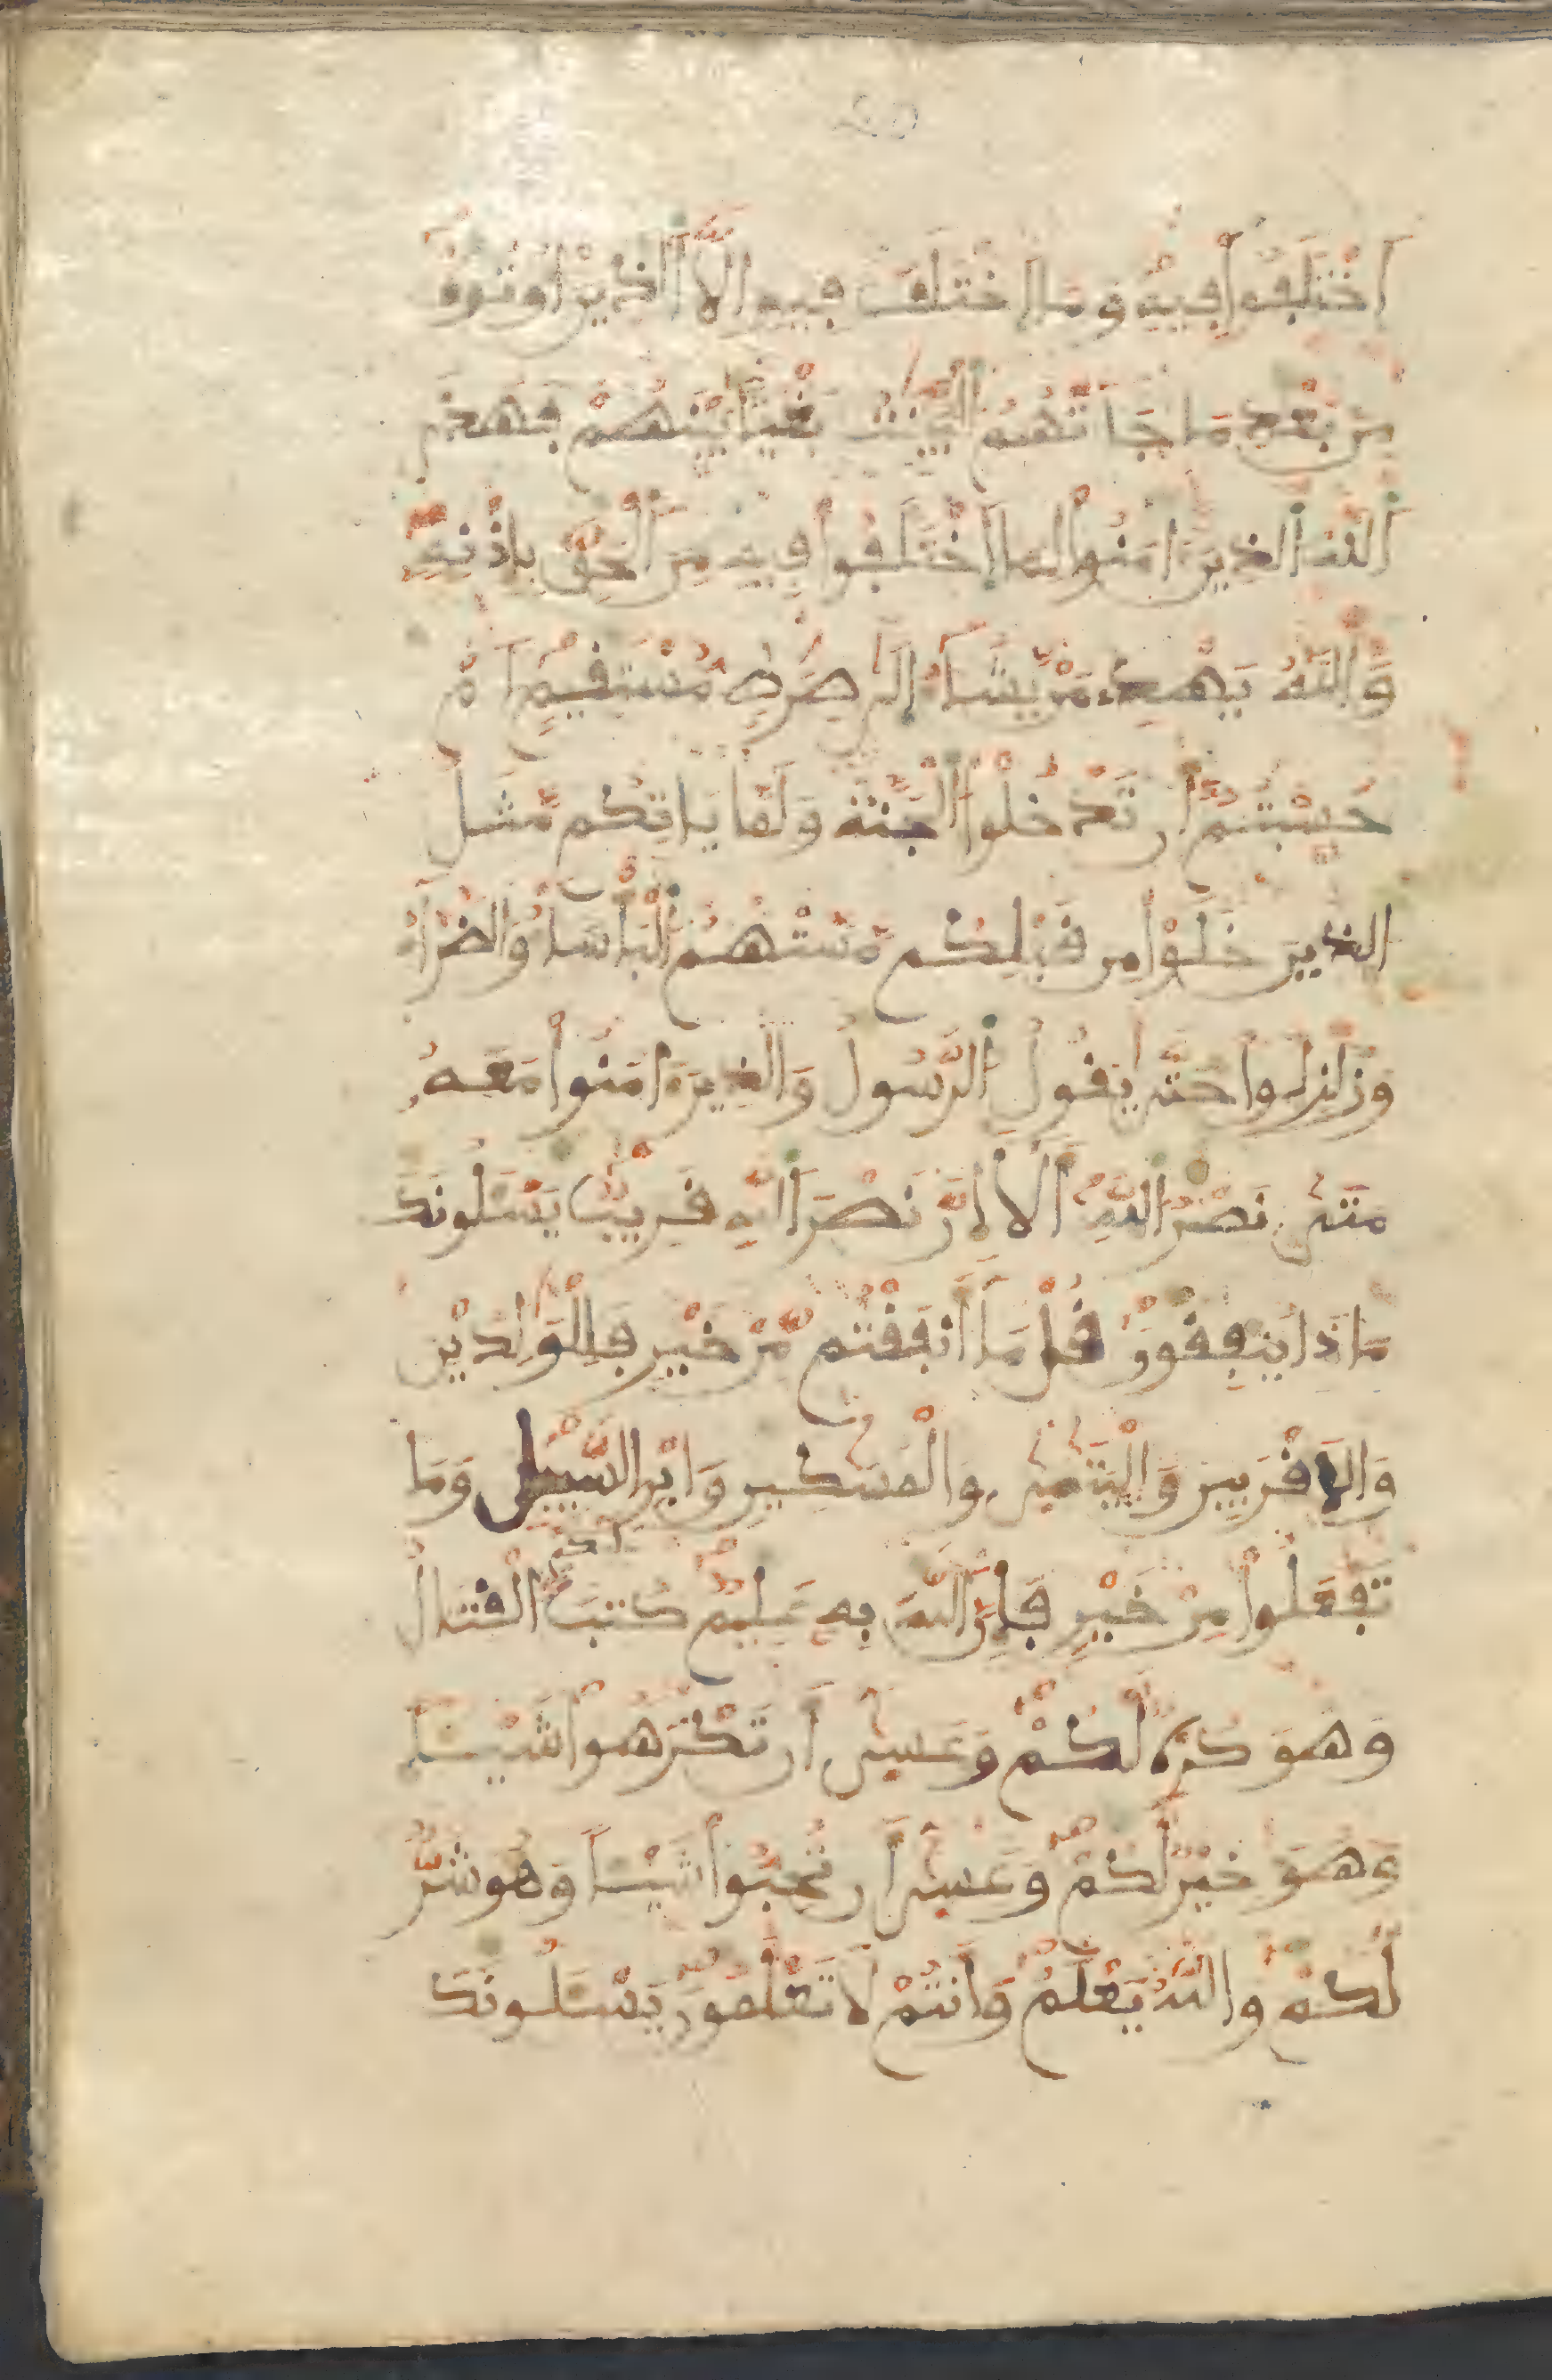 اَخْتَلَفُواْ فِيهِ وَمَا اَخْتَلَفَ فِيهِ إِلَّا اَلذِينَ أُوتُوهُ
مِنۢ بَعْدِ مَا جَآتْهُمُ اُلْبَيِّنَٰتُ بَغْياَۢ بَيْنَهُمْ فَهَدَى
اَللَّهُ اُلذِينَ ءَامَنُواْ لِمَا اَخْتَلَفُواْ فِيهِ مِنَ اَلْحَقِّ بِإِذْنِهِۦ
وَاللَّهُ يَهْدِے مَنْ يَّشَآءُ اِلَىٰ صِرَٰطٖ مُّسْتَقِيمٍ اَمْ
حَسِبْتُمُۥٓ أَن تَدْخُلُواْ اُلْجَنَّةَ وَلَمَّا يَاتِكُم مَّثَلُ
اُلذِينَ خَلَوْاْ مِن قَبْلِكُم مَّسَّتْهُمُ اُلْبَأْسَآءُ وَالضَّرَّآءُ
وَزُلْزِلُواْ حَتَّىٰ يَقُولُ اُلرَّسُولُ وَالذِينَ ءَامَنُواْ مَعَهُۥ
مَتَىٰ نَصْرُ اُللَّهِ أَلَآ إِنَّ نَصْرَ اَللَّهِ قَرِيبٌ يَسْـَٔلُونَكَ
مَاذَا يُنفِقُونَ قُلْ مَآ أَنفَقْتُم مِّنْ خَيْرٖ فَلِلْوَٰلِدَيْنِ
وَالَاقْرَبِينَ وَالْيَتَٰمَىٰ وَالْمَسَٰكِينِ وَابْنِ اِلسَّبِيلِ وَمَا
تَفْعَلُواْ مِنْ خَيْرٖ فَإِنَّ اَللَّهَ بِهِۦ عَلِيمٌ كُتِبَ عَلَيْكُمُ الْقِتَالُ
وَهُوَ كُرْهٌ لَّكُمْ وَعَسَىٰٓ أَن تَكْرَهُواْ شَيْـٔاٗ
وَهُوَ خَيْرٌ لَّكُمْ وَعَسَىٰٓ أَن تُحِبُّواْ شَيْـٔاٗ وَهُوَ شَرٌّ
لَّكُمْ وَاللَّهُ يَعْلَمُ وَأَنتُمْ لَا تَعْلَمُونَ يَسْـَٔلُونَكَ